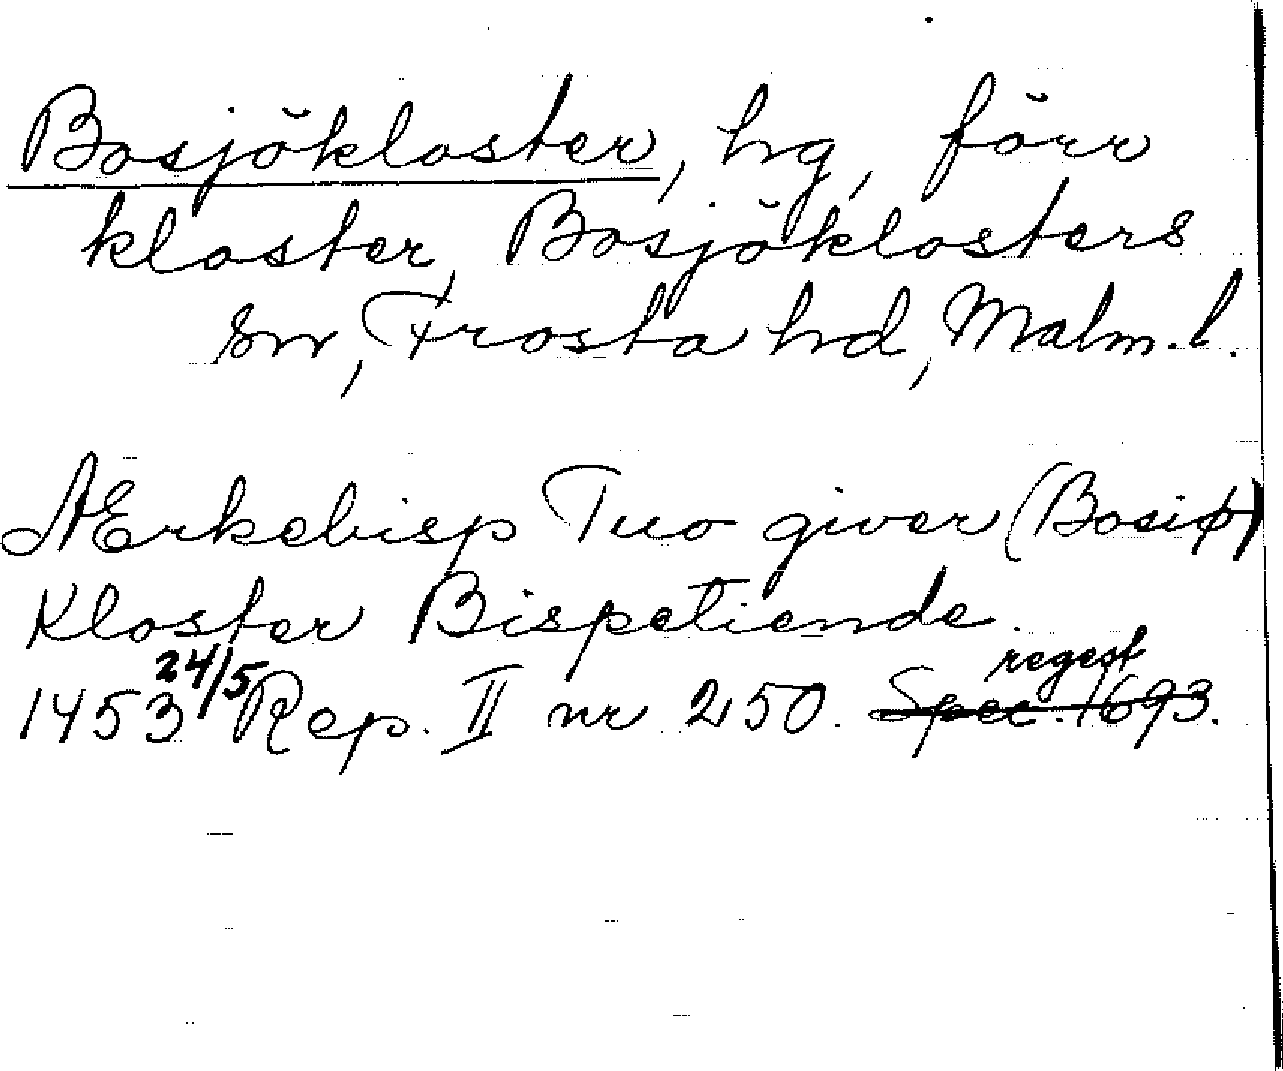 Bosjökloster, hg, förr
kloster, Bosjöklosters
sn, Frosta hd, Malm. l.
Ærkebisp Tuo giver (Bosiø)
Kloster Bispetiende.
1453 24/5 Rep. II nr 250. Spec. 1693. regest